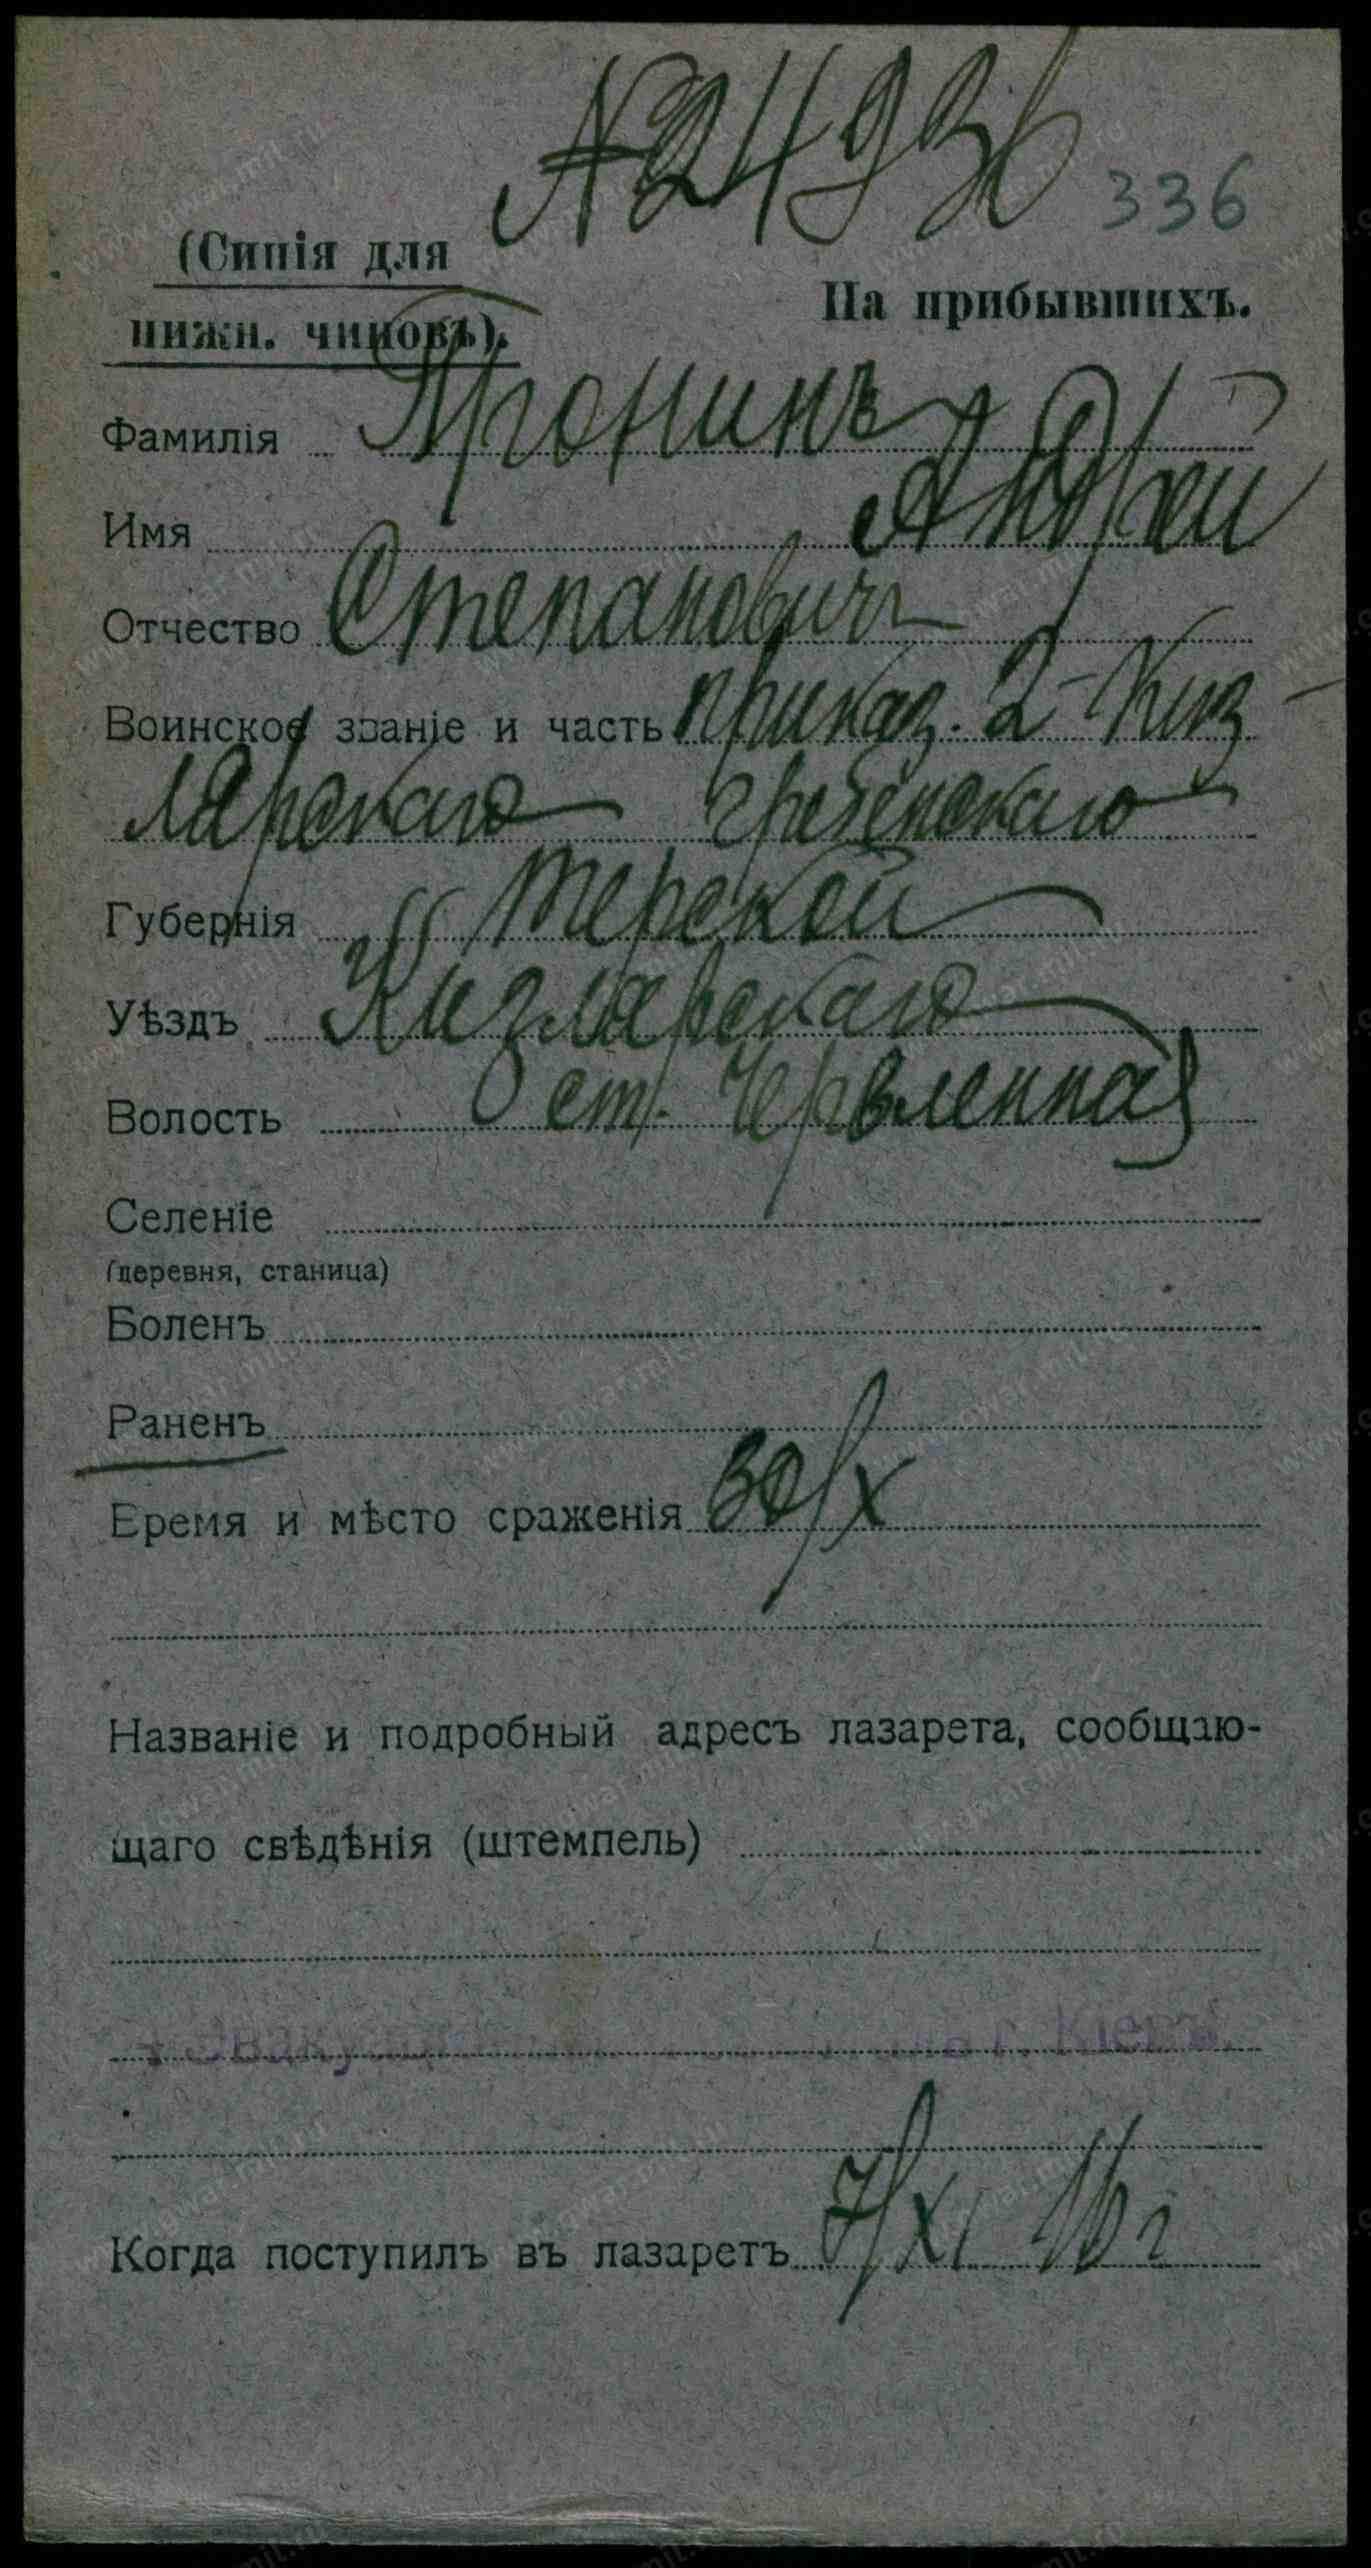 № 24936
336
(Синія для
нижн. чиновъ).
На прибывшихъ.
Фамилія Пронинъ
Имя Андрей
Отчество Степановичъ
Воинское званіе и часть приказ. 2 Киз-
лярскаго гребенскаго
Губернія Терской
Уѣздъ Кизлярскаго
Волость ст. Червленная
Селеніе
(деревня, станица)
Боленъ
Раненъ
Время и мѣсто сраженія 30/X
Названіе и подробный адресъ лазарета, сообщаю-
щаго свѣдѣнія (штемпель)
г. Кіевъ.
Когда поступилъ въ лазаретъ 7/XI 16 г